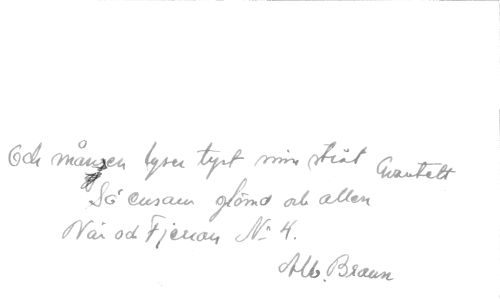 Och månzen lyser tyst min stråt Quantett
Så ensam glömd och allen
När och Fjerran No 4.
Alb. Braun